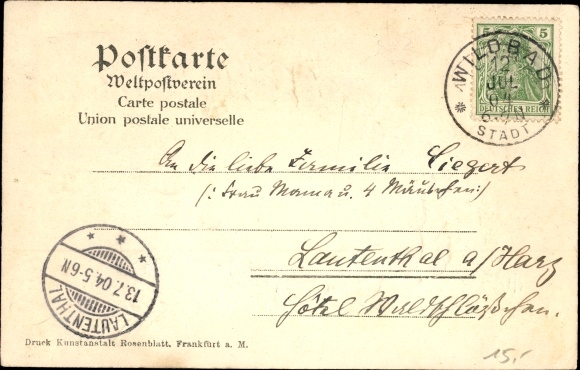 Postkarte
Weltpostverein
Carte postale
Union postale universelle
5 5
DEUTSCHES REICH
WILDBAD
12
JUL
STADT
An die liebe Familie Siegert
(: Frau Mama u. 4 Mäuschen :)
Lautenthal a/Harz
Hôtel Waldschlößchen.
LAUTENTHAL
13.7.04.5-6N
Druck Kunstanstalt Rosenblatt, Frankfurt a. M.
15,-